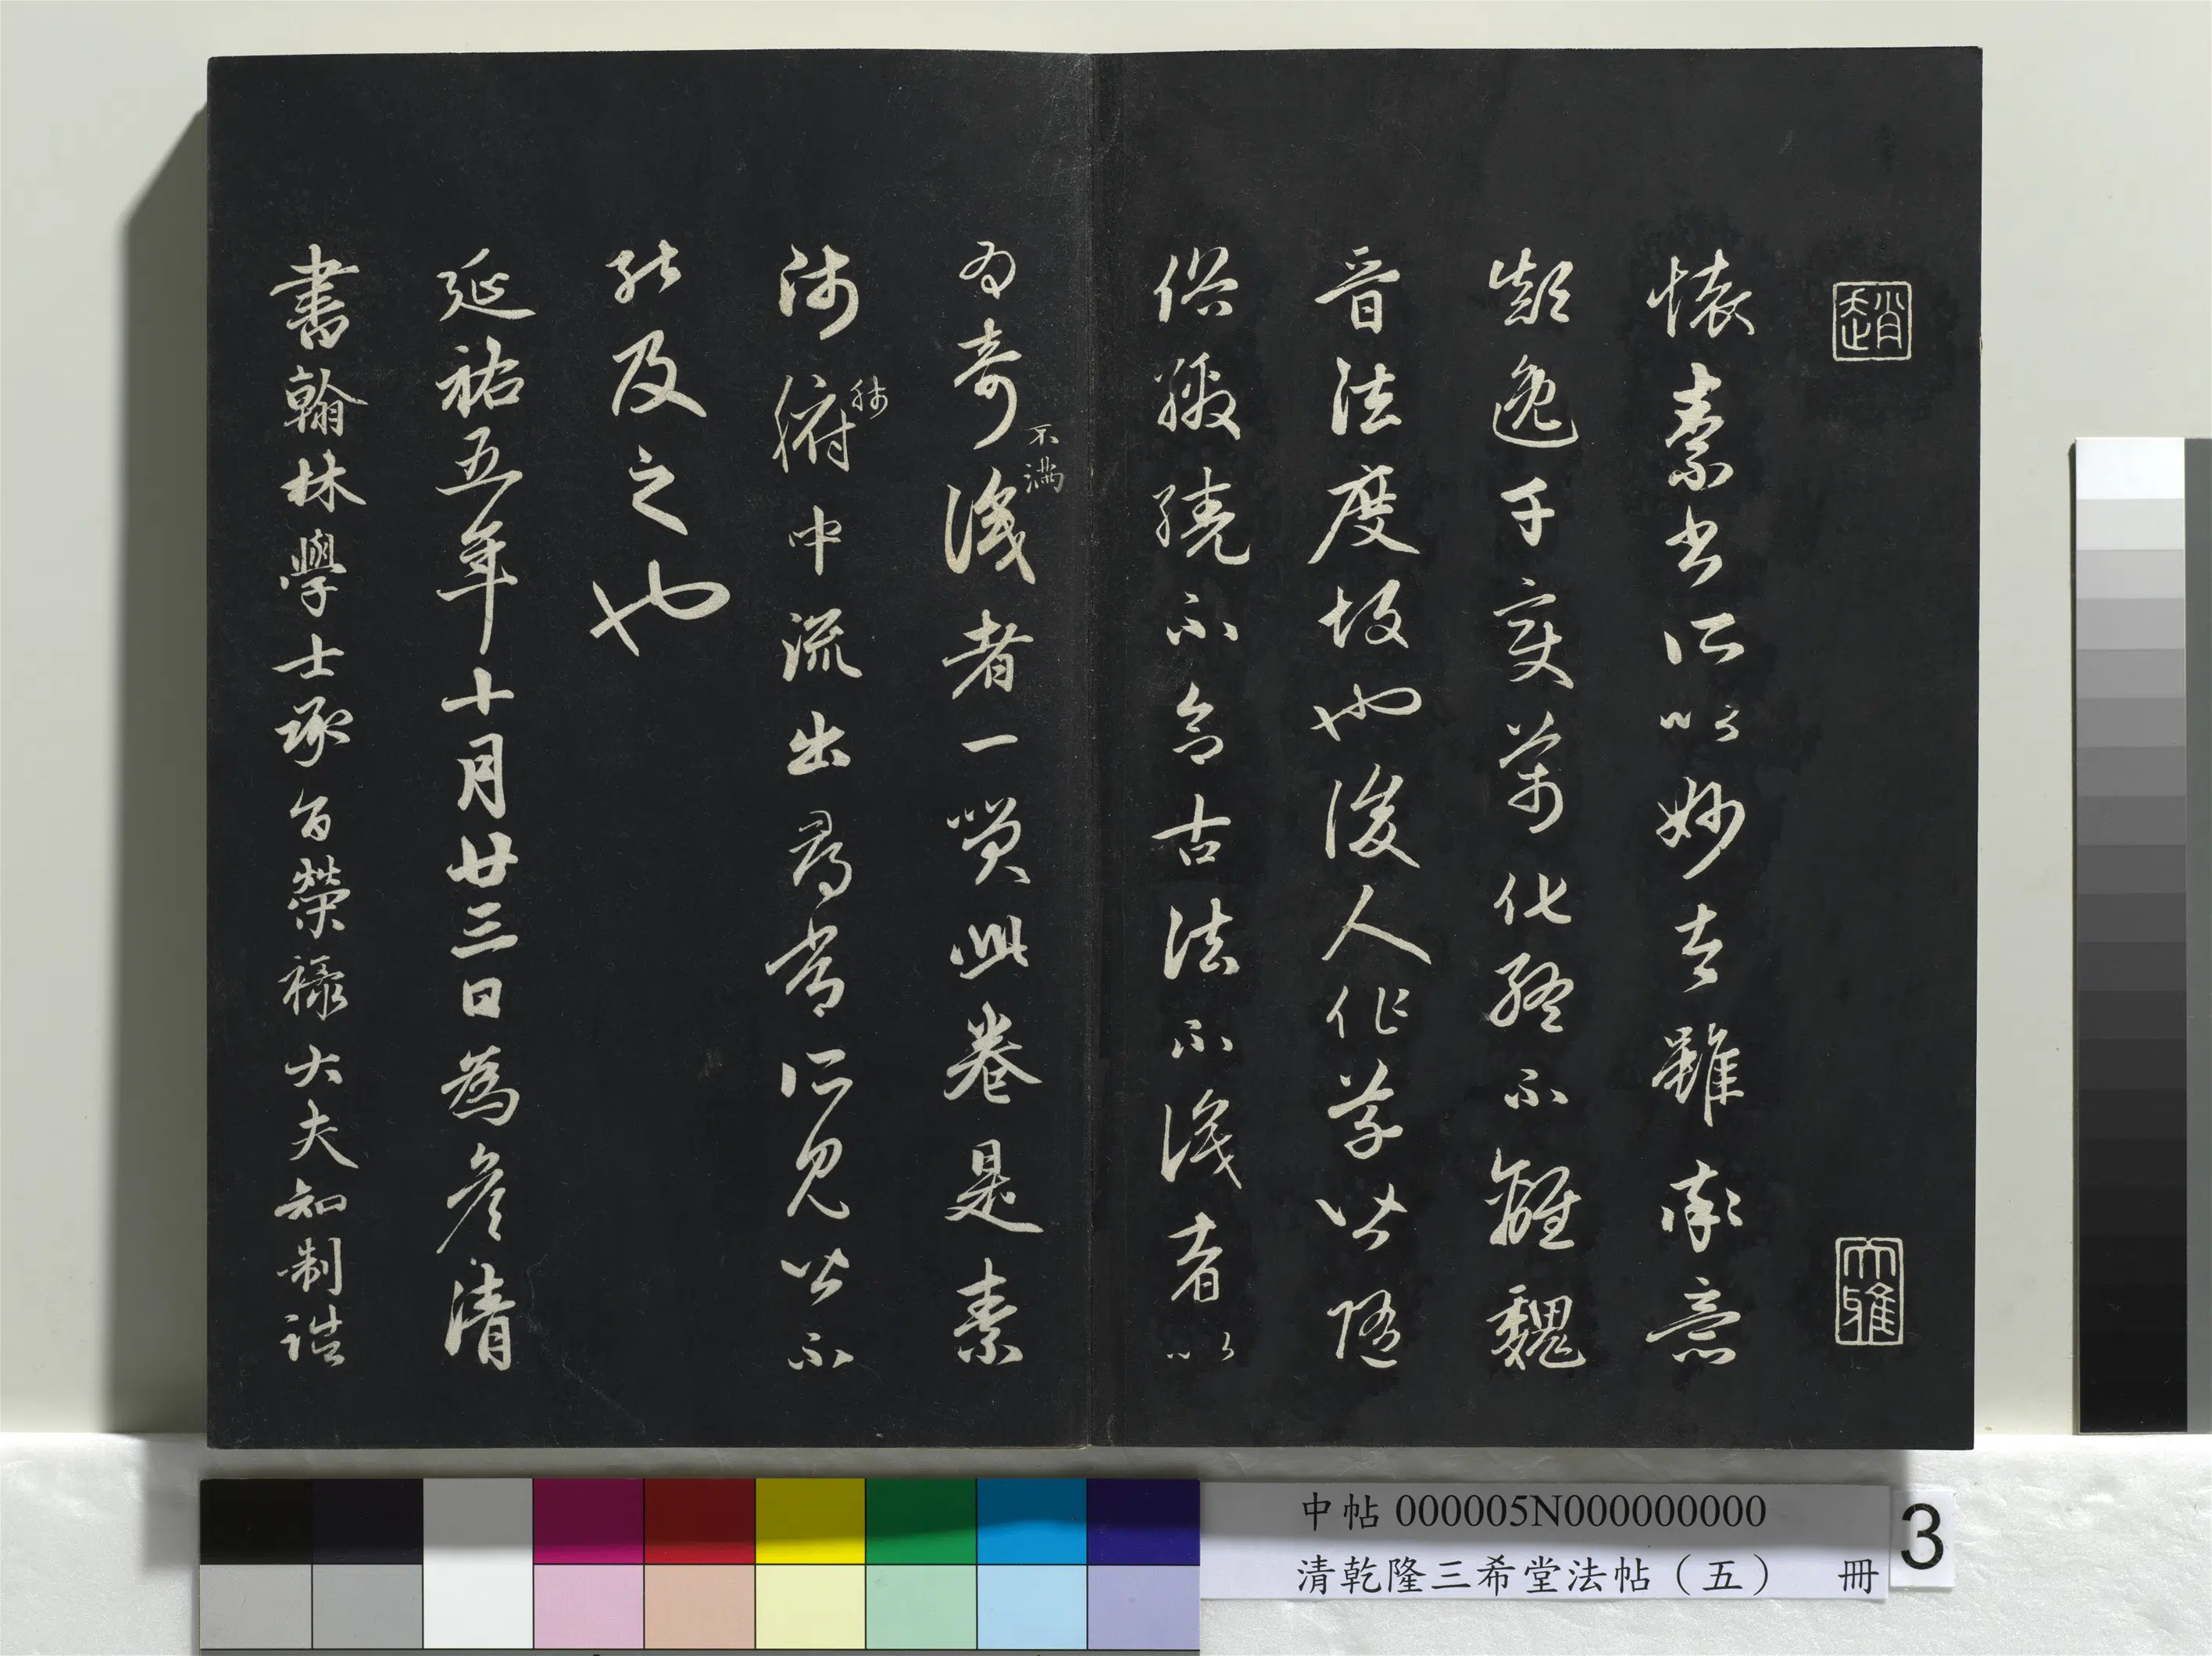 趙
大雅
懷素書所以妙者雖率意
顛逸千變萬化終不離魏
晉法度故也後人作草皆隨
俗繳繞不合古法不識者以
為奇不滿識者一笑此卷是素
師肺腑中流出尋常所見皆不
能及之也
延祐五年十月廿三日為彥清
書翰林學士承旨榮祿大夫知制誥
中帖 000005N000000000
清乾隆三希堂法帖（五） 冊
3